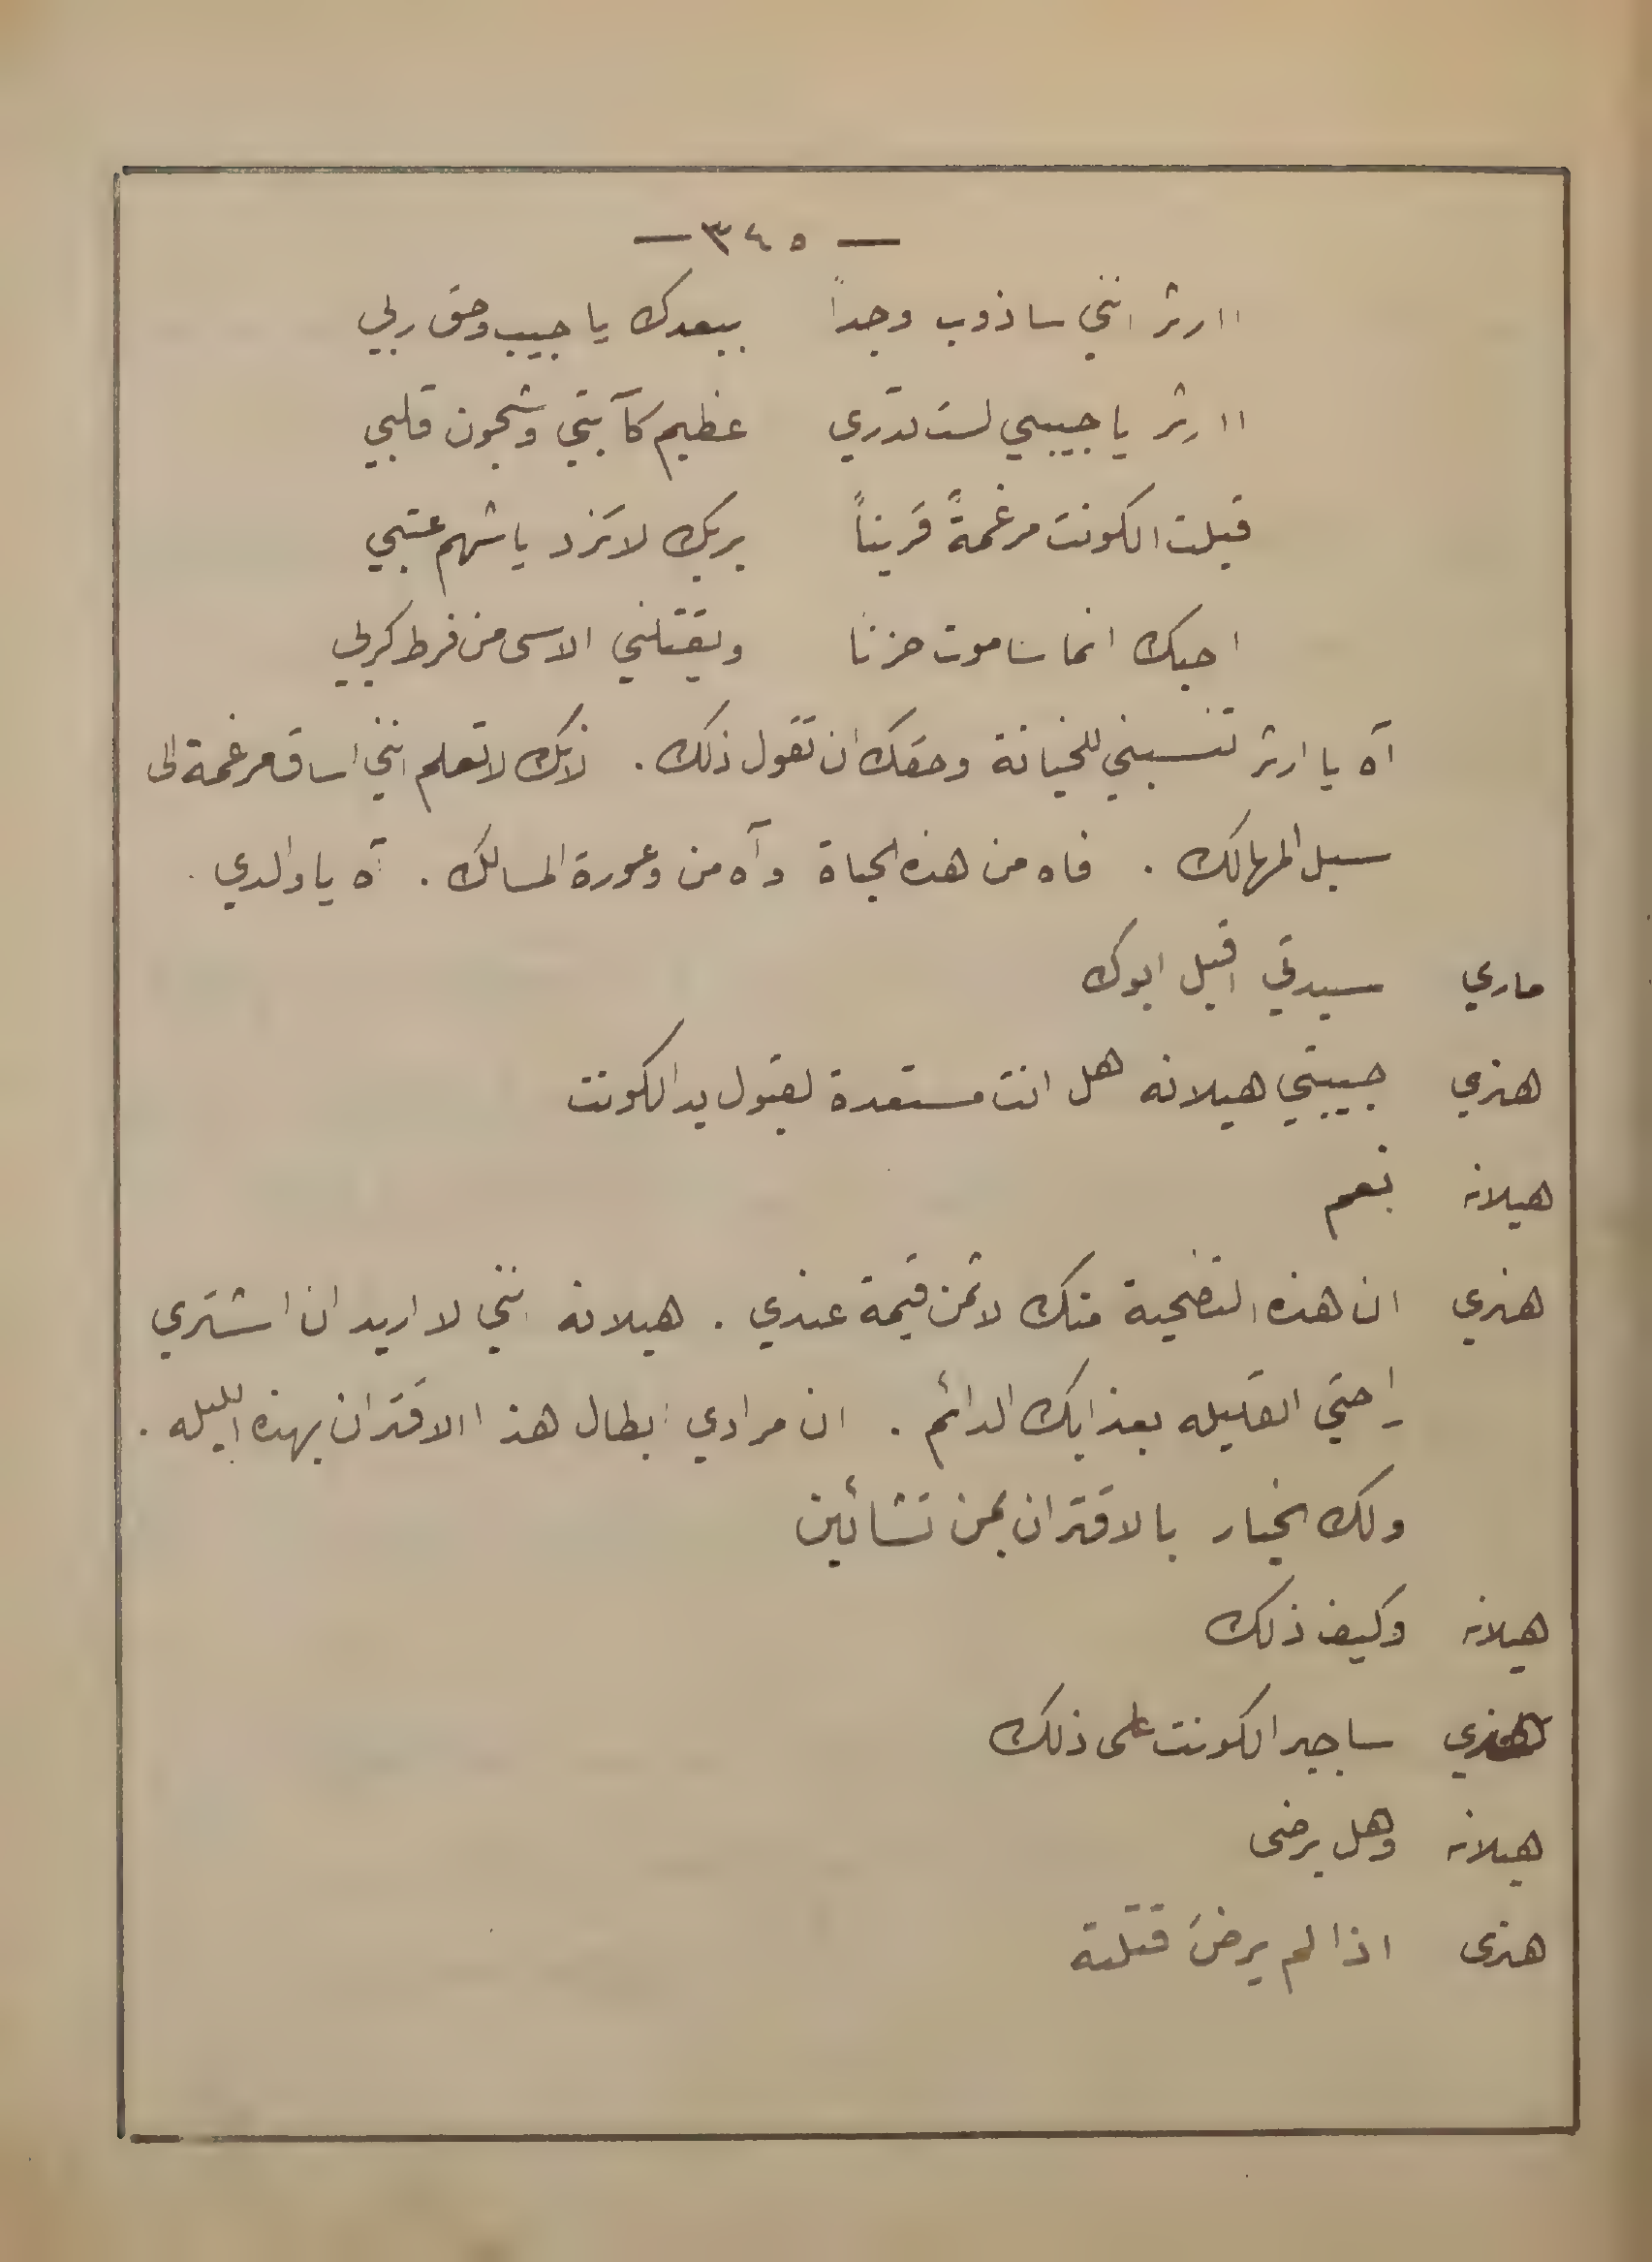 — ٣٤٥ —
اارثر انني ساذوب وجداً ببعدك يا حبيب وحق ربي
اارثر يا حبيبي لست تدري عظيم كآبتي وشجون قلبي
قبلت الكونت مرغمةً قريناً بربك لا تزد يا شهم عتبي
احبك انما ساموت حزنا ويقتلني الاسى من فرط كربي
آه يا ارثر تنسبني للخيانة وحقك ان تقول ذلك . لانك لا تعلم انني اساق مرغمة الى
سبل المهالك . فاه من هذه الحياة وآه من وعورة المسالك . آه يا والدي .
ماري سيدتي اقبل ابوك
هنري حبيبتي هيلانه هل انت مستعدة لقبول يد الكونت
هيلانه نعم
هنري ان هذه التضحية منك لاثمن قيمة عندي . هيلانه انني لا اريد ان اشتري
راحتي القليله بعذابك الدائم . ان مرادي ابطال هذا الاقتران بهذه الليله .
ولك الخيار بالاقتران بمن تشائين
هيلانه وكيف ذلك
هنري ساجبر الكونت على ذلك
هيلانه وهل يرضى
هنرى اذا لم يرضَ قتلته